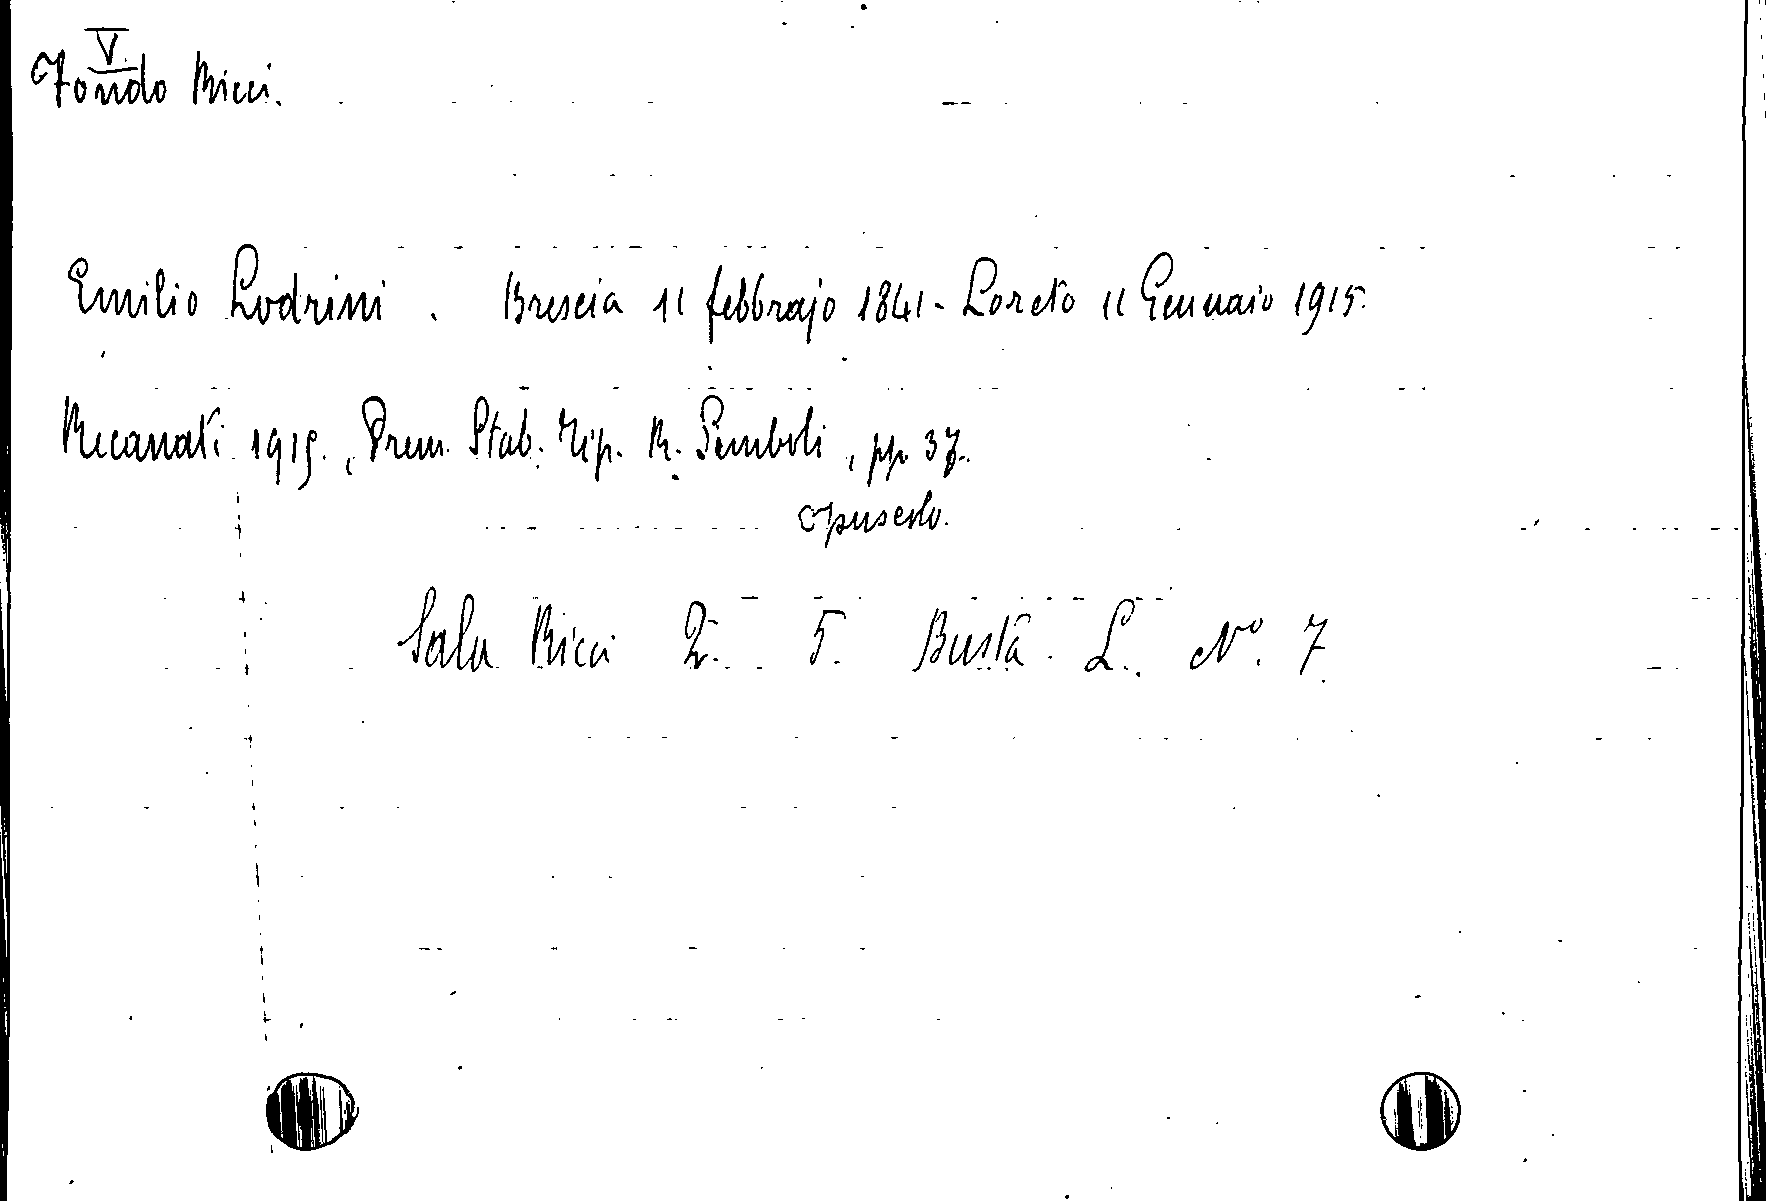 V.
Fondo Ricci.
Emilio Lodrini. Brescia 11 febbrajo 1841 - Loreto 11 Gennaio 1915.
Recanati 1915., Prem. Stab. Tip. R. Simboli, pp. 37.
opuscolo.
Sala Ricci 2. 5. Busta L. No. 7